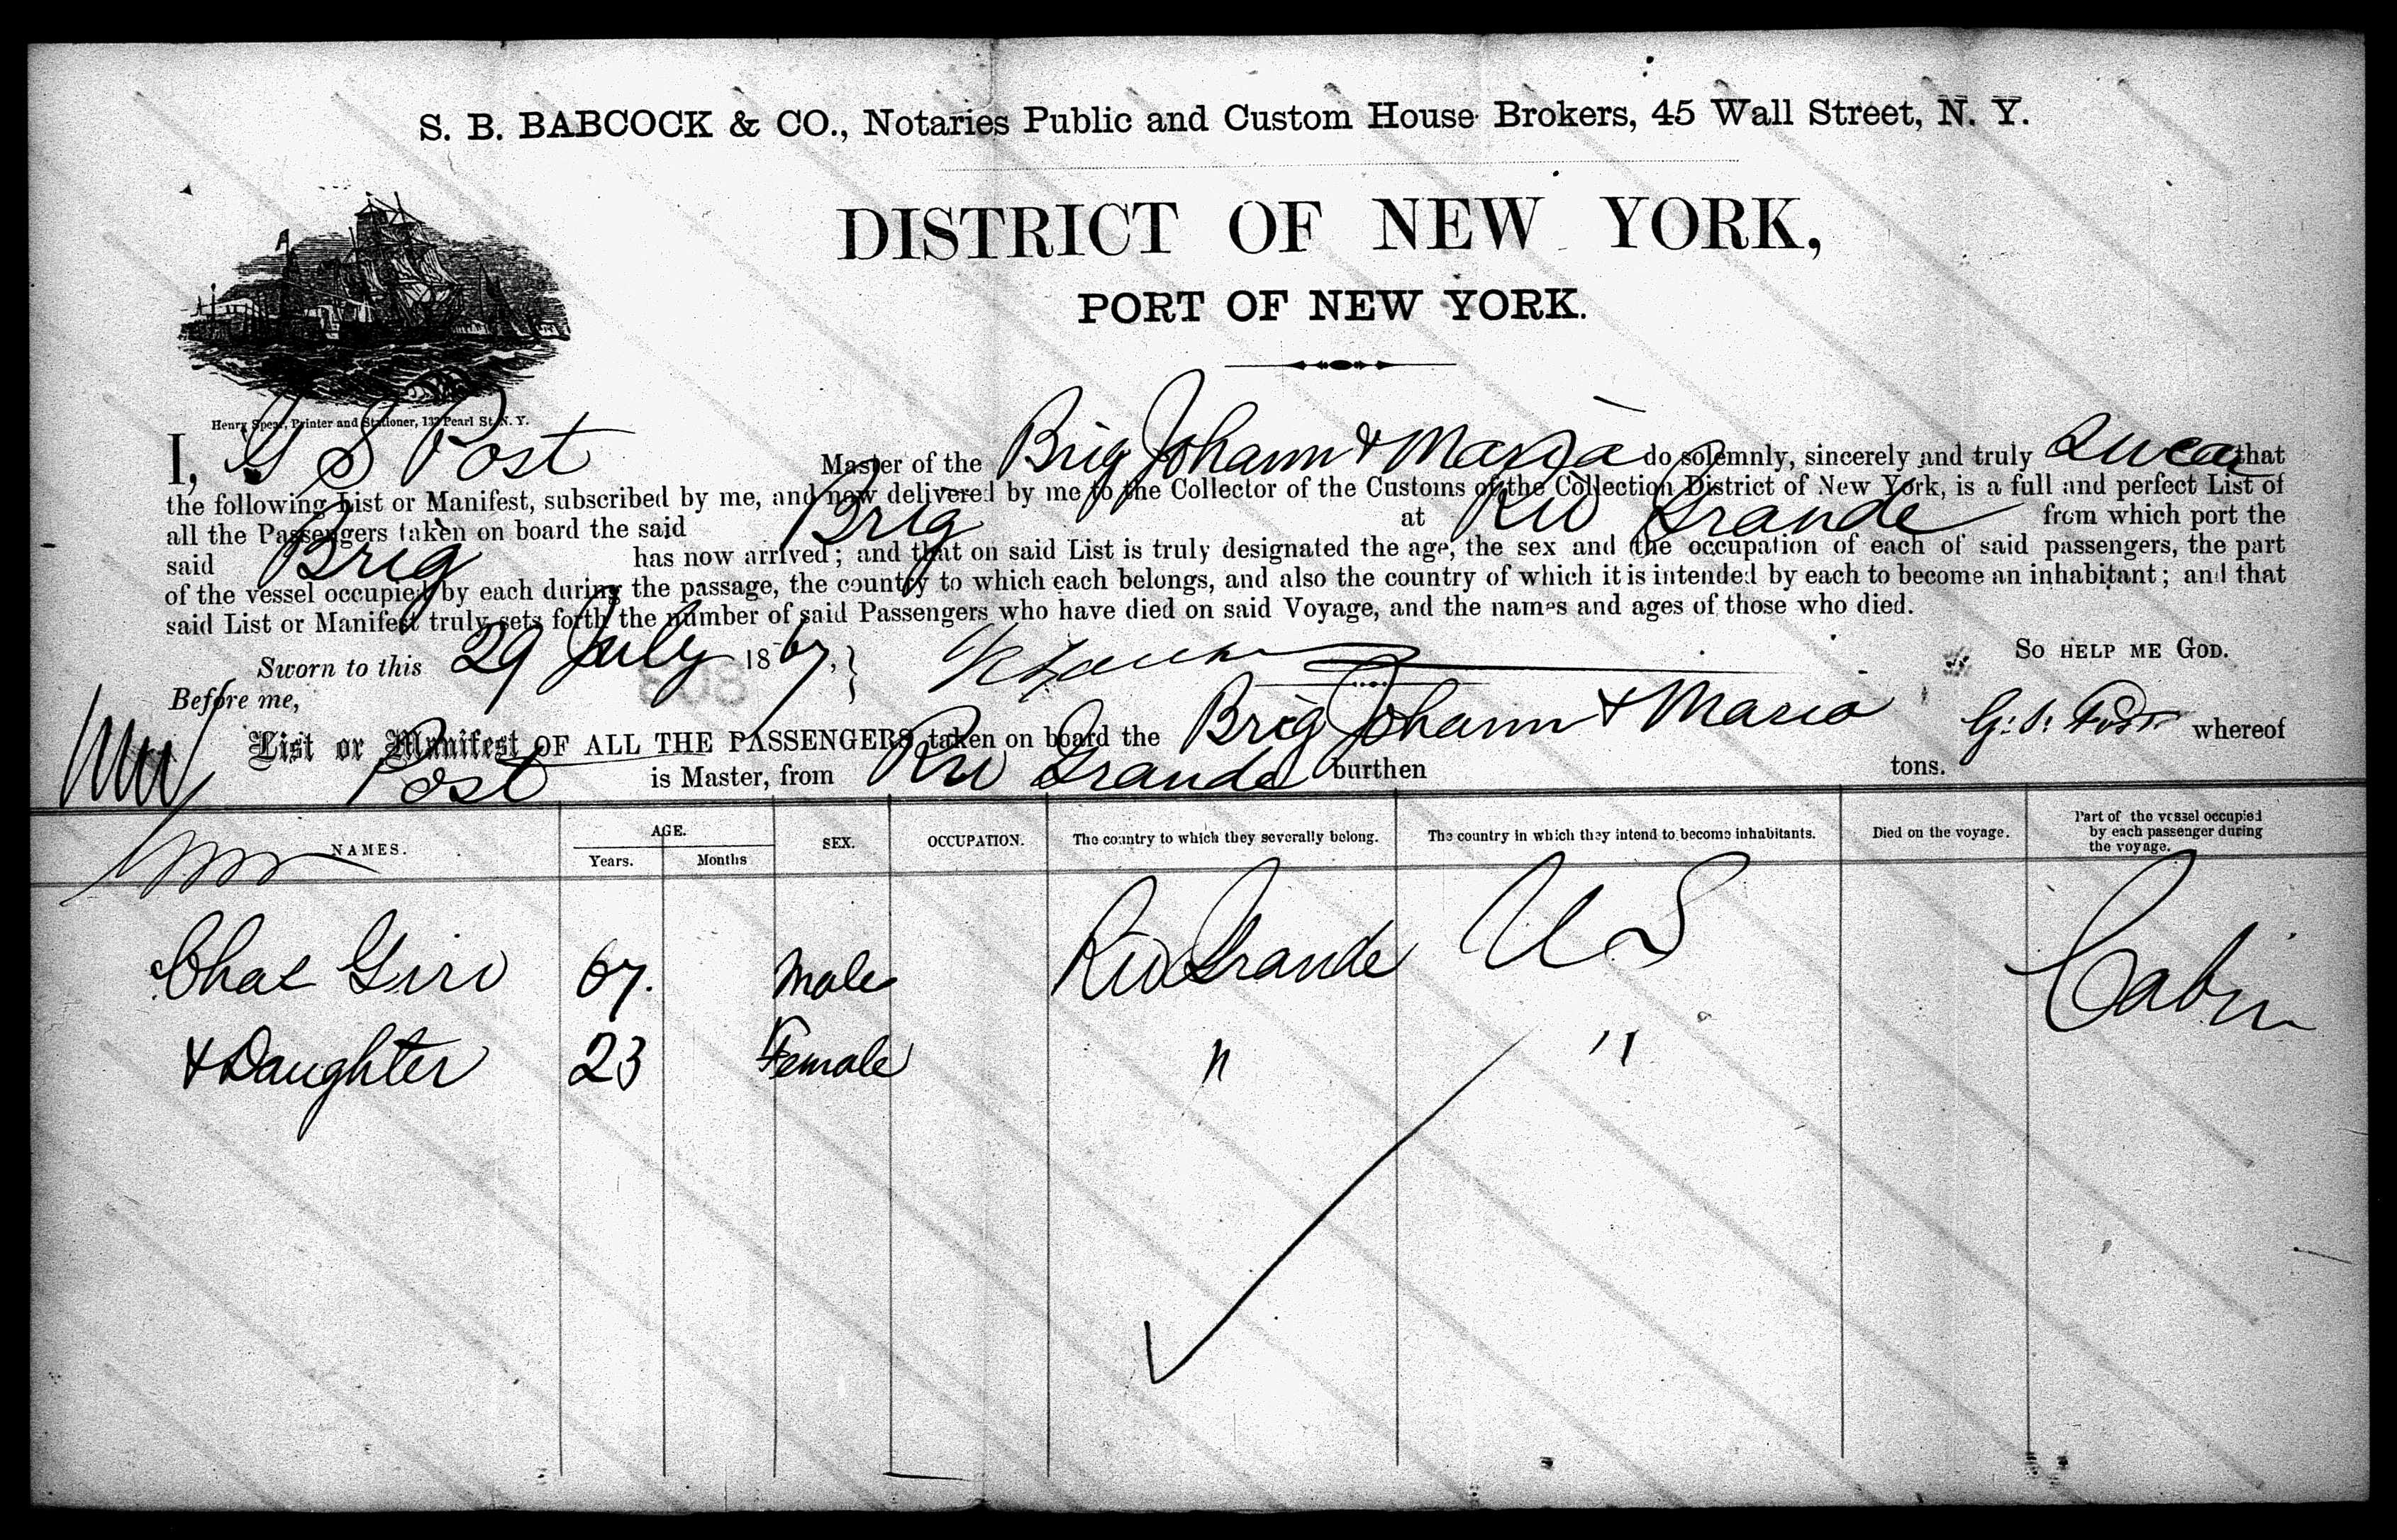 S. B. BABCOCK & CO., Notaries Public and Custom House Brokers, 45 Wall Street, N. Y.
DISTRICT OF NEW YORK,
PORT OF NEW YORK.
Henry Spear, Printer and Stationer, 133 Pearl St. N. Y.
I, G S Post Master of the Brig Johann & Maria do solemnly, sincerely and truly Swear that
the following List or Manifest, subscribed by me, and now delivered by me to the Collector of the Customs of the Collection District of New York, is a full and perfect List of
all the Passengers taken on board the said Brig at Rio Grande from which port the
said Brig has now arrived; and that on said List is truly designated the age, the sex and the occupation of each of said passengers, the part
of the vessel occupied by each during the passage, the country to which each belongs, and also the country of which it is intended by each to become an inhabitant; and that
said List or Manifest truly sets forth the number of said Passengers who have died on said Voyage, and the names and ages of those who died.
Sworn to this 29 July 1867. SO HELP ME GOD.
Before me,
808
List or Manifest OF ALL THE PASSENGERS taken on board the Brig Johann & Maria G. S. Post whereof
Post is Master, from Rio Grande burthen tons.
NAMES. AGE. Years. Months SEX. OCCUPATION. The country to which they severally belong. The country in which they intend to become inhabitants. Died on the voyage. Part of the vessel occupied by each passenger during the voyage.
Chas Giro 67. Male Rio Grande U S Cabin
& Daughter 23 Female " "